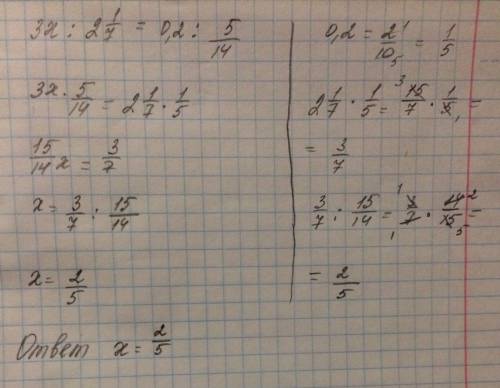 3x : 2 1/7 = 0,2 : 5/14
3x · 5/14 = 2 1/7 · 1/5
15/14 x = 3/7
x = 3/7 : 15/14
x = 2/5
Ответ x = 2/5
0,2 = 2 1/10 5 = 1/5
2 1/7 · 1/5 = 3 15/7 · 1/5 1 =
= 3/7
3/7 : 15/14 = 1 3/7 1 · 14 2/15 5 =
= 2/5